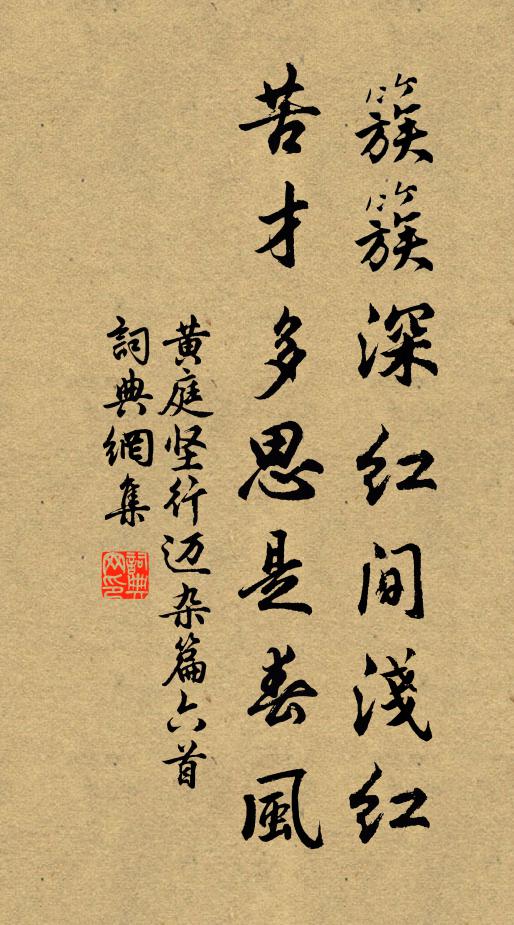 簇簇深红间淺红
苦才多思是春風
黄庭坚行迈杂篇六首
詞典網集
詞典網印